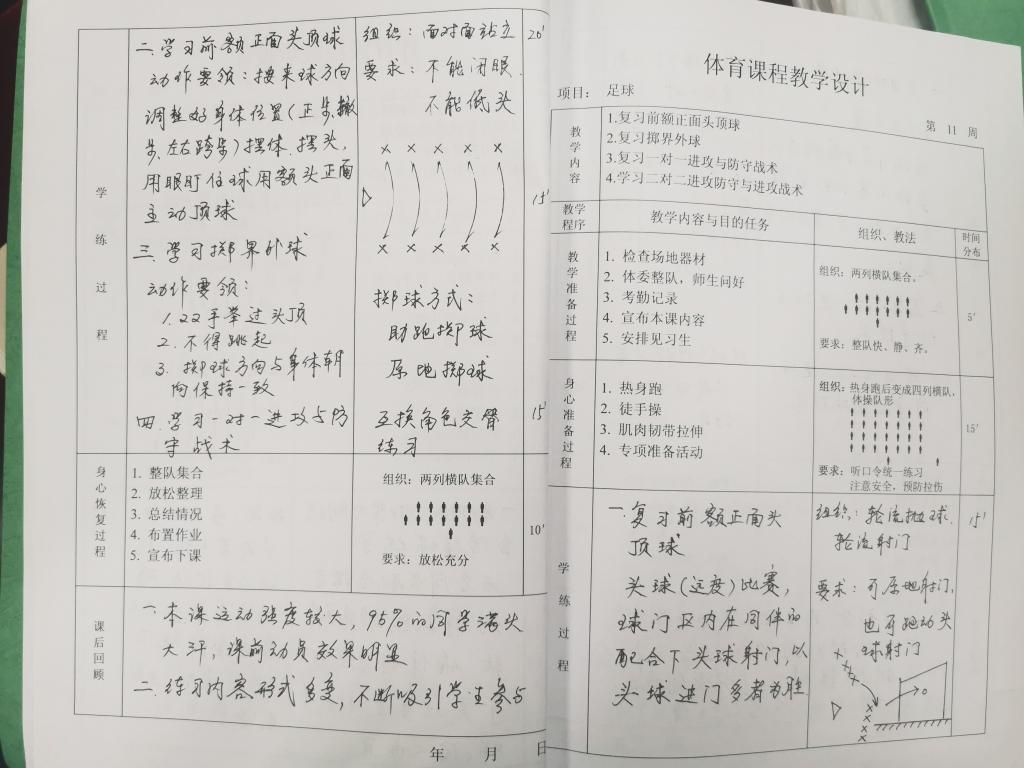 学练过程
二、学习前额正面头顶球
动作要领：接来球方向
调整好身体位置(正步、撤
步、左右跨步)摆体、摆头,
用眼盯住球用额头正面
主动顶球
三、学习掷界外球
动作要领：
1.双手举过头顶
2.不得跳起
3.掷球方向与身体朝
向保持一致
四.学习一对一进攻与防
守战术
组织：面对面站立
要求：不能闭眼.
不能低头
掷球方式：
助跑掷球
原地掷球
互换角色交替
练习
20'
15'
15'
身心恢复过程
1. 整队集合
2. 放松整理
3. 总结情况
4. 布置作业
5. 宣布下课
组织：两列横队集合
要求：放松充分
10'
课后回顾
一.本课运动强度较大，95%的同学满头
大汗，课前动员效果明显
二.练习内容形式多变，不断吸引学生参与
年 月 日
体育课程教学设计
项目： 足球
第 11 周
教学内容
1.复习前额正面头顶球
2.复习掷界外球
3.复习一对一进攻与防守战术
4.学习二对二进攻防守与进攻战术
教学程序
教学内容与目的任务
组织、教法
时间分布
教学准备过程
1. 检查场地器材
2. 体委整队，师生问好
3. 考勤记录
4. 宣布本课内容
5. 安排见习生
组织：两列横队集合。
要求：整队快、静、齐。
5'
身心准备过程
1. 热身跑
2. 徒手操
3. 肌肉韧带拉伸
4. 专项准备活动
组织：热身跑后变成四列横队，
体操队形
要求：听口令统一练习
注意安全，预防拉伤
15'
学练过程
一.复习前额正面头
顶球
头球(达度)比赛,
球门区内在同伴的
配合下头球射门,以
头球进门多者为胜
组织：轮流抛球.
轮流射门
要求：可原地射门,
也可跑动头
球射门
15'